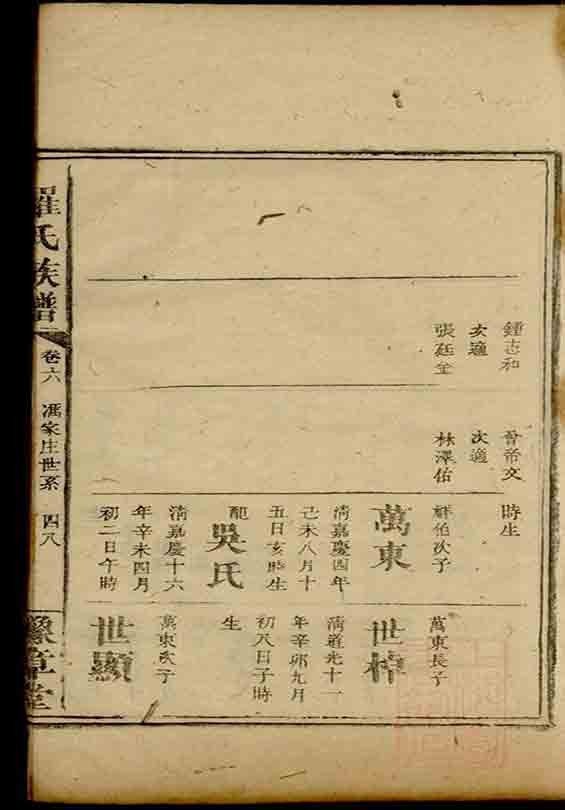 鍾志和
次適
張廷全
晉帝文
次適
林澤佑
時生
祥伯次子
萬東
清嘉慶四年
己未八月十
五日亥時生
配
吳氏
清嘉慶十六
年辛未四月
初二日午時
萬東長子
世梓
清道光十一
年辛卯九月
初八日子時
生
萬東次子
世顯
羅氏族譜
卷六
馮家庄世系
四八
豫章堂